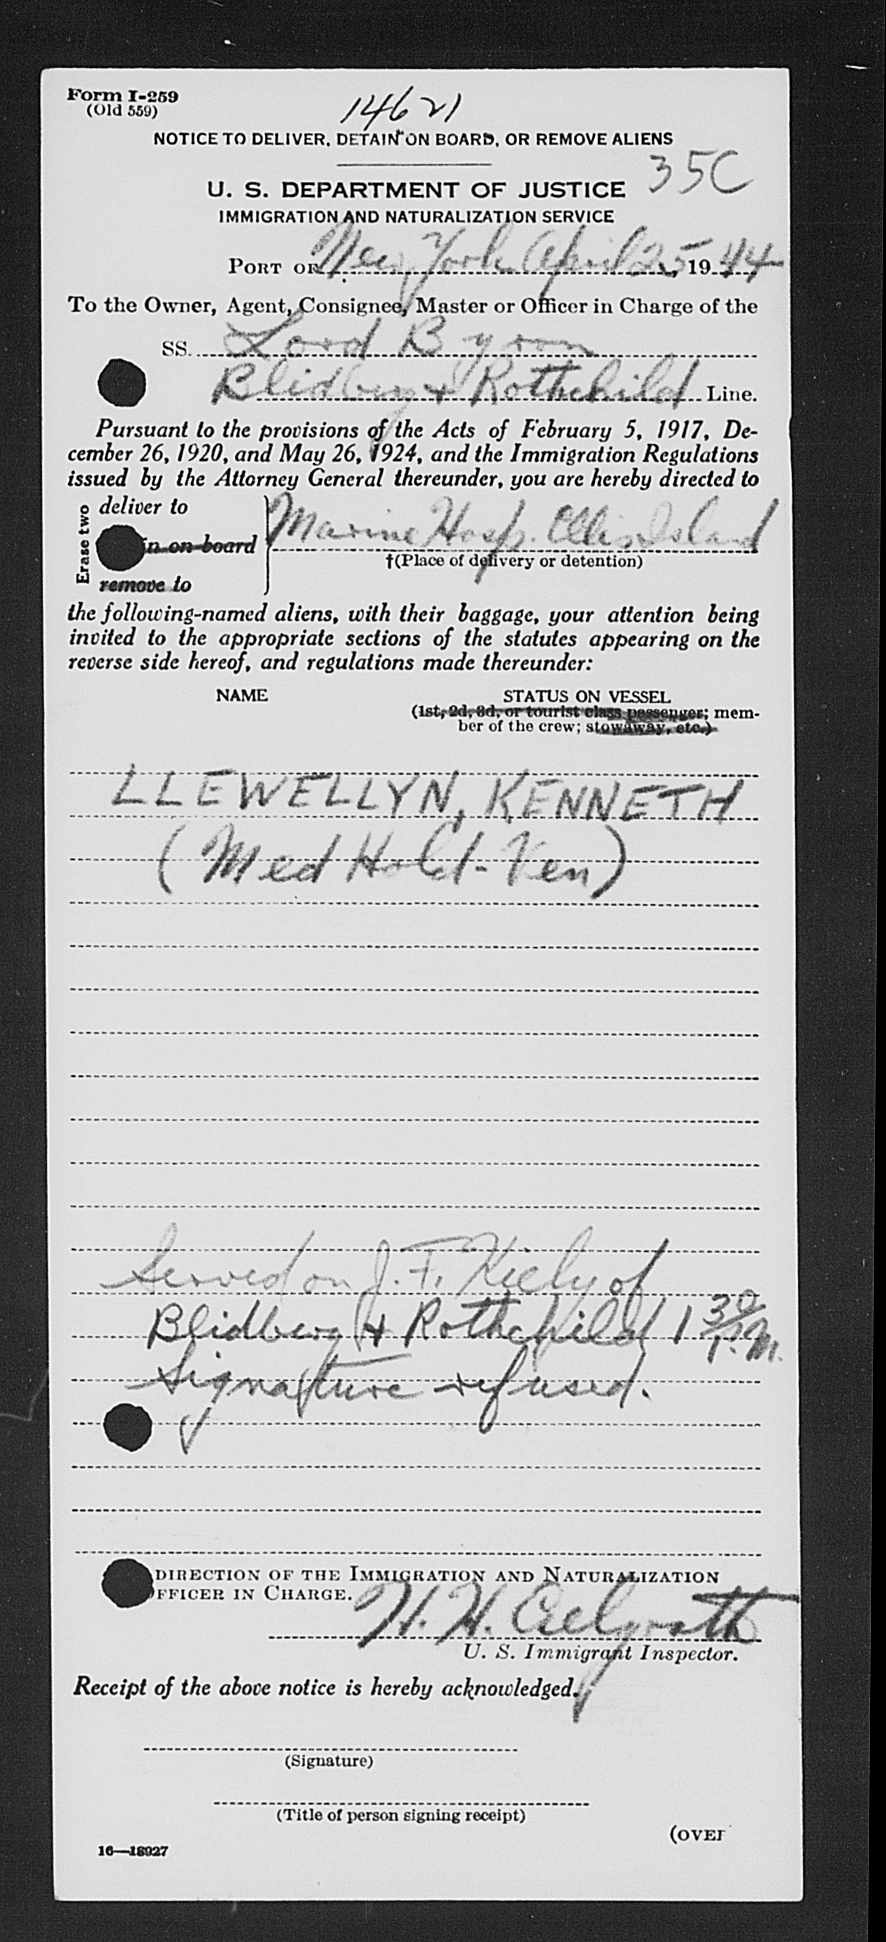 Form I-259
(Old 559)
14621
NOTICE TO DELIVER, DETAIN ON BOARD, OR REMOVE ALIENS
35C
U. S. DEPARTMENT OF JUSTICE
IMMIGRATION AND NATURALIZATION SERVICE
PORT OF New York April 25, 1944
To the Owner, Agent, Consignee, Master or Officer in Charge of the
SS. Lord Byron
Blidberg & Rothchild Line.
Pursuant to the provisions of the Acts of February 5, 1917, De-
cember 26, 1920, and May 26, 1924, and the Immigration Regulations
issued by the Attorney General thereunder, you are hereby directed to
Erase two
deliver to
in on board
remove to
Marine Hosp. Ellis Island
†(Place of delivery or detention)
the following-named aliens, with their baggage, your attention being
invited to the appropriate sections of the statutes appearing on the
reverse side hereof, and regulations made thereunder:
NAME
STATUS ON VESSEL
(1st, 2d, 3d, or tourist class passenger; mem-
ber of the crew; stowaway, etc.)
LLEWELLYN, KENNETH
(Med Hold - Ven)
Served on J. F. Kiely of
Blidberg & Rothchild 1 30 P.M.
Signature refused.
DIRECTION OF THE IMMIGRATION AND NATURALIZATION
FFICER IN CHARGE.
H. H.
U. S. Immigrant Inspector.
Receipt of the above notice is hereby acknowledged.
(Signature)
(Title of person signing receipt)
(OVER
16—18027